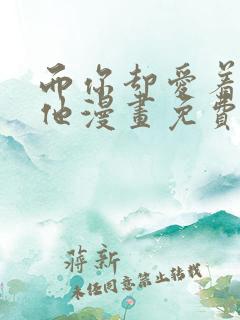 而你却爱着
他漫畫免費
蔣新
未任同意禁止转载